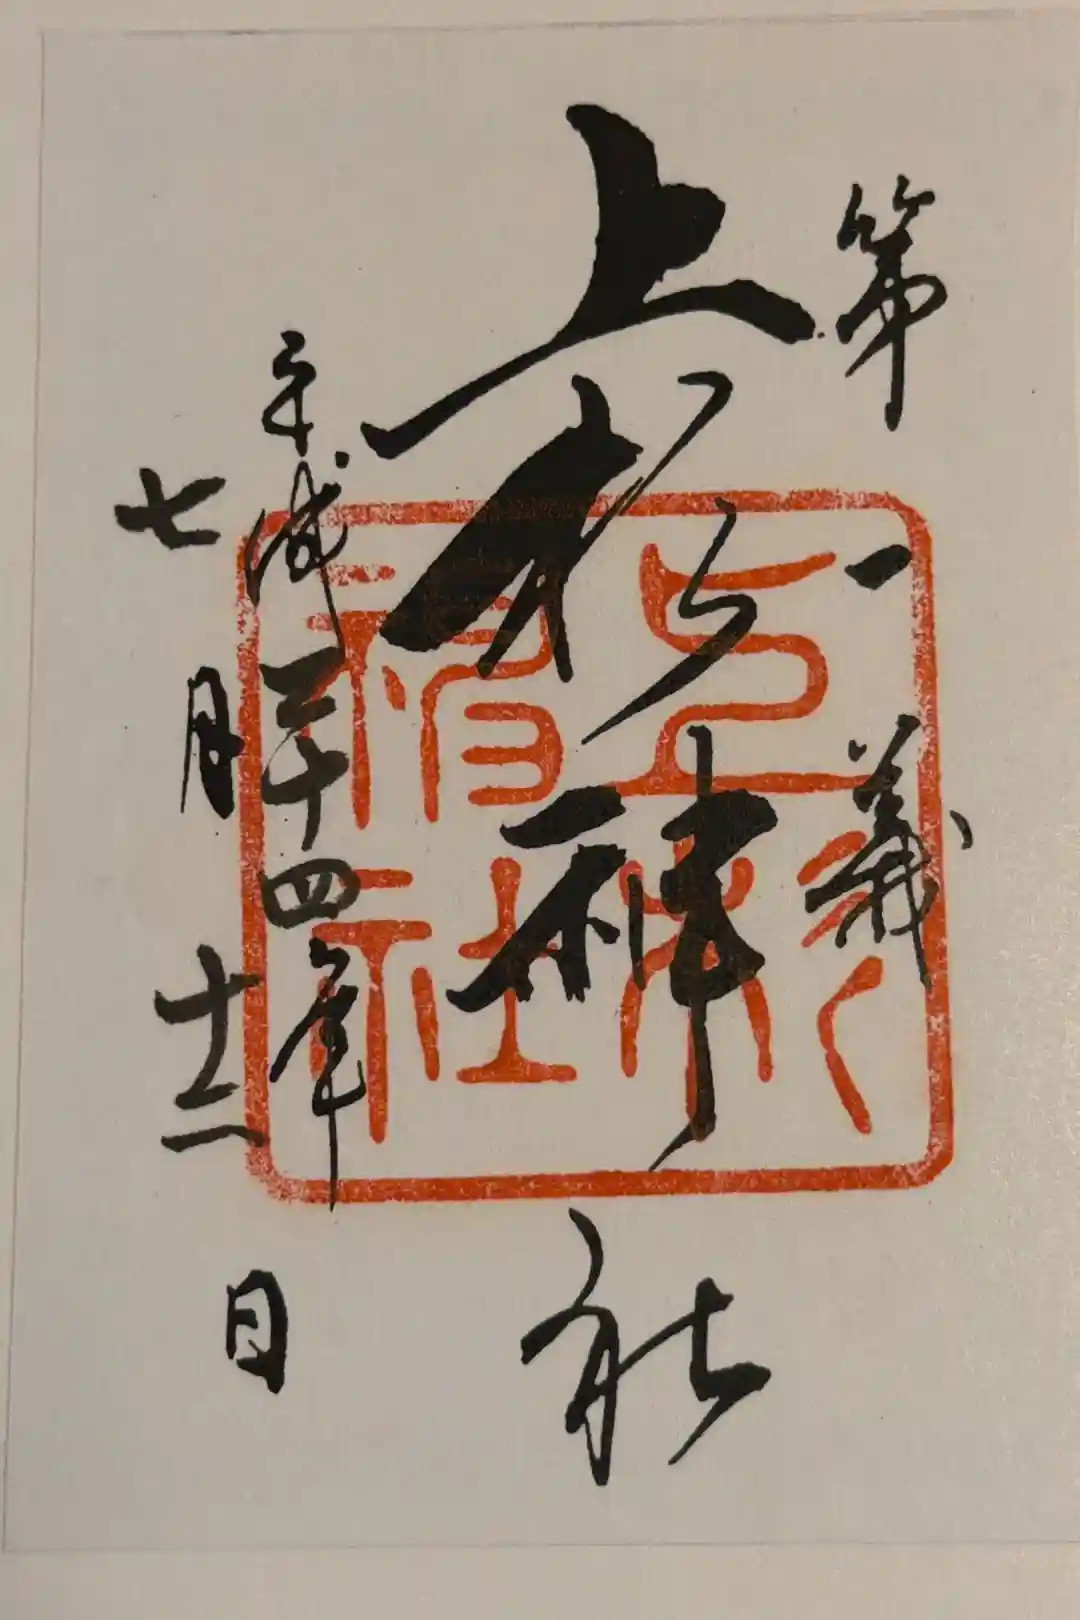 第一義
上杉神社
平成二十四年
七月十二日
上杉
神社